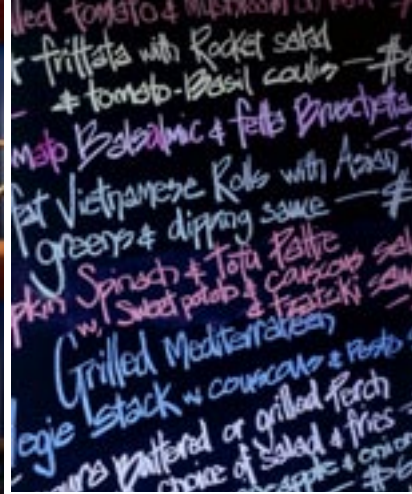 lled tomato & mushroom on
frittata with Rocket salad
& tomato-Basil coulis — $
mato Balsalmic & fetta Bruschetta
fat Vietnamese Rolls with Asian
greens & dipping sauce — $
pkin Spinach & Tofu Pattie
w, Sweet potato & couscous sal
& tzatziki
Grilled Mediterraneen
egie stack w couscous & Pesto
Battered or grilled Perch
choice of salad & fries
apple & onion
— $6